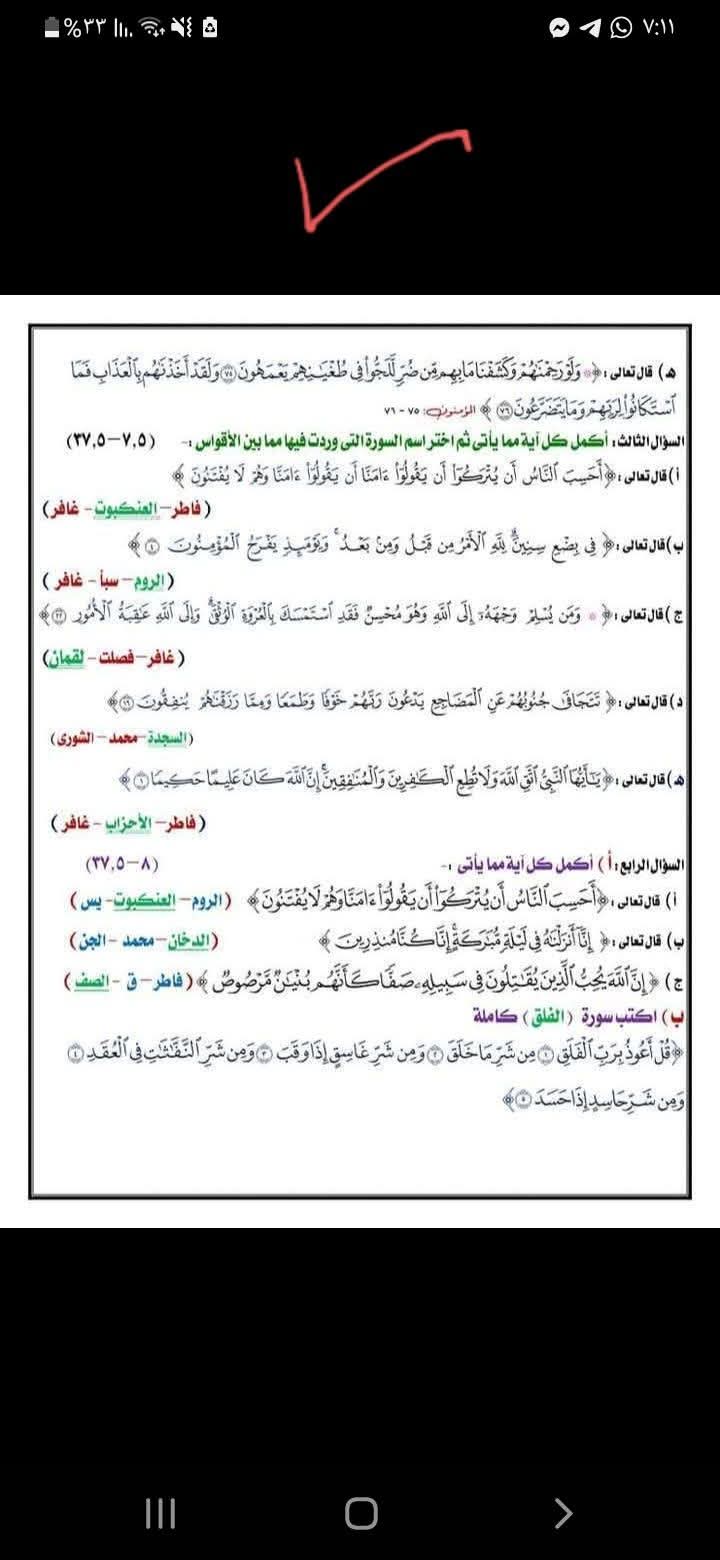 %٣٣ ٧:١١
هـ) قال تعالى : ﴿ ۞ وَلَوْ رَحِمْنَٰهُمْ وَكَشَفْنَا مَا بِهِم مِّن ضُرٍّ لَّلَجُّوا۟ فِى طُغْيَٰنِهِمْ يَعْمَهُونَ ۝٧٥ وَلَقَدْ أَخَذْنَٰهُم بِٱلْعَذَابِ فَمَا
ٱسْتَكَانُوا۟ لِرَبِّهِمْ وَمَا يَتَضَرَّعُونَ ۝٧٦ ﴾ المؤمنون: ٧٥ - ٧٦
السؤال الثالث: أكمل كل آية مما يأتى ثم اختر اسم السورة التى وردت فيها مما بين الأقواس :- (٧,٥–٣٧,٥)
أ) قال تعالى : ﴿ أَحَسِبَ ٱلنَّاسُ أَن يُتْرَكُوٓا۟ أَن يَقُولُوٓا۟ ءَامَنَّا أَن يَقُولُوٓا۟ ءَامَنَّا وَهُمْ لَا يُفْتَنُونَ ﴾
(فاطر– العنكبوت- غافر)
ب) قال تعالى : ﴿ فِى بِضْعِ سِنِينَ ۗ لِلَّهِ ٱلْأَمْرُ مِن قَبْلُ وَمِنۢ بَعْدُ ۚ وَيَوْمَئِذٍ يَفْرَحُ ٱلْمُؤْمِنُونَ ۝٤ ﴾
(الروم– سبأ- غافر )
ج) قال تعالى : ﴿ ۞ وَمَن يُسْلِمْ وَجْهَهُۥٓ إِلَى ٱللَّهِ وَهُوَ مُحْسِنٌ فَقَدِ ٱسْتَمْسَكَ بِٱلْعُرْوَةِ ٱلْوُثْقَىٰ ۗ وَإِلَى ٱللَّهِ عَٰقِبَةُ ٱلْأُمُورِ ۝٢٢ ﴾
(غافر- فصلت- لقمان)
د) قال تعالى : ﴿ تَتَجَافَىٰ جُنُوبُهُمْ عَنِ ٱلْمَضَاجِعِ يَدْعُونَ رَبَّهُمْ خَوْفًا وَطَمَعًا وَمِمَّا رَزَقْنَٰهُمْ يُنفِقُونَ ۝١٦ ﴾
(السجدة– محمد- الشورى)
هـ) قال تعالى : ﴿ يَٰٓأَيُّهَا ٱلنَّبِىُّ ٱتَّقِ ٱللَّهَ وَلَا تُطِعِ ٱلْكَٰفِرِينَ وَٱلْمُنَٰفِقِينَ ۗ إِنَّ ٱللَّهَ كَانَ عَلِيمًا حَكِيمًا ۝١ ﴾
(فاطر– الأحزاب- غافر)
السؤال الرابع: أ) أكمل كل آية مما يأتى :- (٨–٣٧,٥)
أ) قال تعالى : ﴿ أَحَسِبَ ٱلنَّاسُ أَن يُتْرَكُوٓا۟ أَن يَقُولُوٓا۟ ءَامَنَّا وَهُمْ لَا يُفْتَنُونَ ﴾ (الروم– العنكبوت- يس)
ب) قال تعالى : ﴿ إِنَّآ أَنزَلْنَٰهُ فِى لَيْلَةٍ مُّبَٰرَكَةٍ ۚ إِنَّا كُنَّا مُنذِرِينَ ﴾ (الدخان– محمد- الجن)
ج) ﴿ إِنَّ ٱللَّهَ يُحِبُّ ٱلَّذِينَ يُقَٰتِلُونَ فِى سَبِيلِهِۦ صَفًّا كَأَنَّهُم بُنْيَٰنٌ مَّرْصُوصٌ ﴾ (فاطر– ق - الصف)
ب) اكتب سورة (الفلق) كاملة
﴿ قُلْ أَعُوذُ بِرَبِّ ٱلْفَلَقِ ۝١ مِن شَرِّ مَا خَلَقَ ۝٢ وَمِن شَرِّ غَاسِقٍ إِذَا وَقَبَ ۝٣ وَمِن شَرِّ ٱلنَّفَّٰثَٰتِ فِى ٱلْعُقَدِ ۝٤
وَمِن شَرِّ حَاسِدٍ إِذَا حَسَدَ ۝٥ ﴾